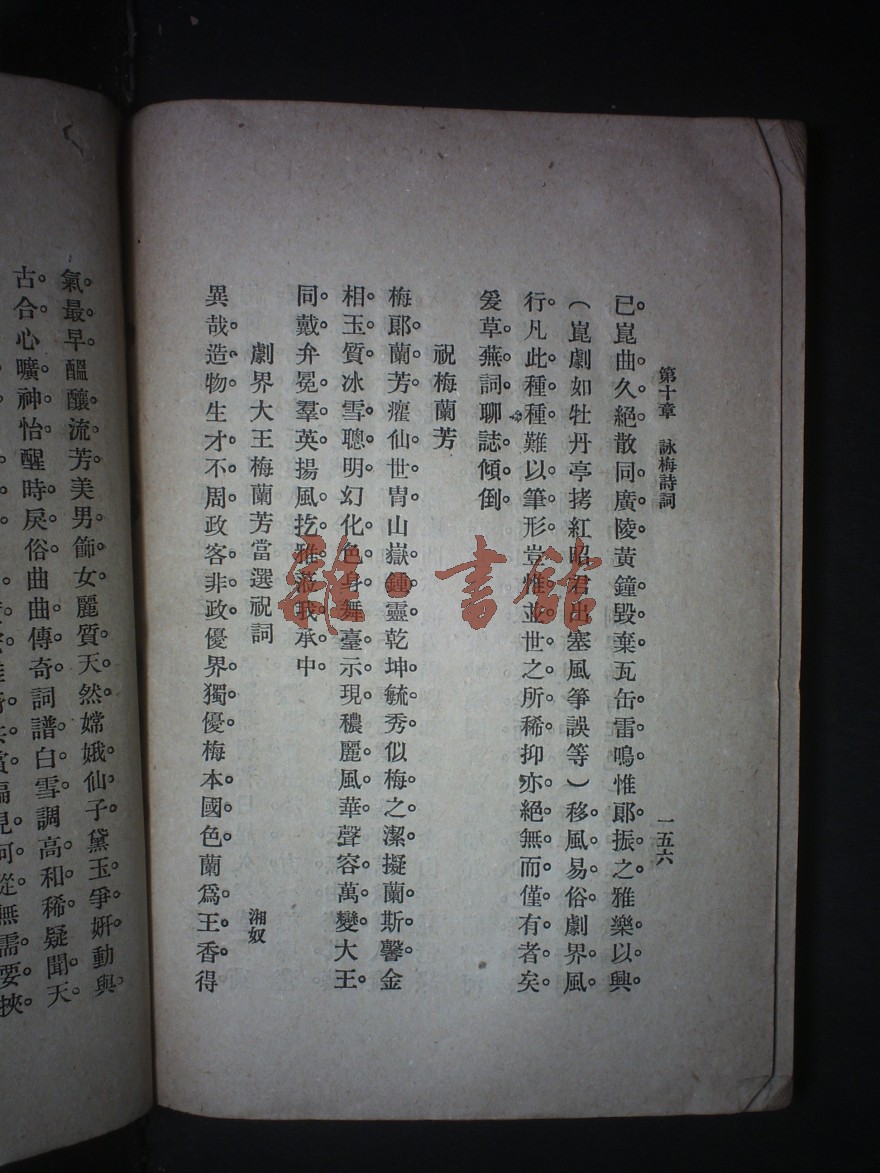 第十章　詠梅詩詞
一五六
已。崑曲久絕。散同廣陵。黃鐘毀棄。瓦缶雷鳴。惟郎振之。雅樂以興。
（崑劇如牡丹亭拷紅昭君出塞風箏誤等）移風易俗。劇界風
行。凡此種種。難以筆形。豈惟並世之所稀。抑亦絕無而僅有者矣。
爰草蕪詞。聊誌傾倒。
祝梅蘭芳
梅郎蘭芳。癯仙世冑。山嶽鍾靈。乾坤毓秀。似梅之潔。擬蘭斯馨。金
相玉質。冰雪聰明。幻化色身。舞臺示現。穠麗風華。聲容萬變。大王
同戴。弁冕羣英。揚風扢雅。
承中。
劇界大王梅蘭芳當選祝詞
湘奴
異哉造物。生才不周。政客非政。優界獨優。梅本國色。蘭爲王香。得
氣最早。醞釀流芳。美男飾女。麗質天然。嫦娥仙子。黛玉爭妍。動與
古合。心曠神怡。醒時戾俗。曲曲傳奇。詞譜白雪。調高和稀。疑聞天
見何從。無需要挾。
雜·書館